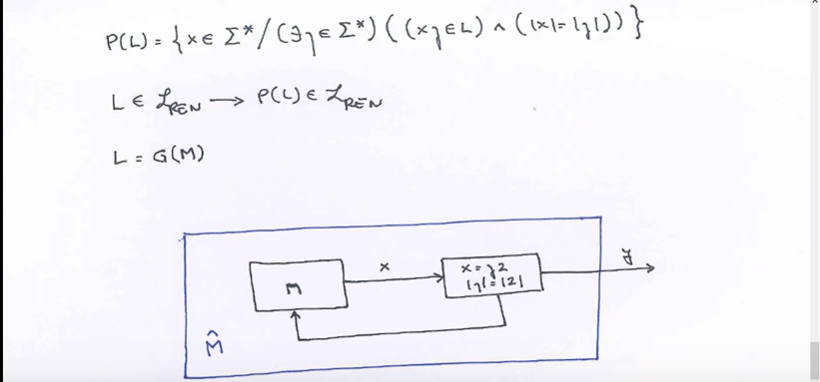 P(L) = {x ∈ Σ* / (∃y ∈ Σ*) ((xy ∈ L) ∧ (|x| = |y|))}
L ∈ ℒREN → P(L) ∈ ℒREN
L = G(M)
x
y
M
x = yz
|y| = |z|
M̂